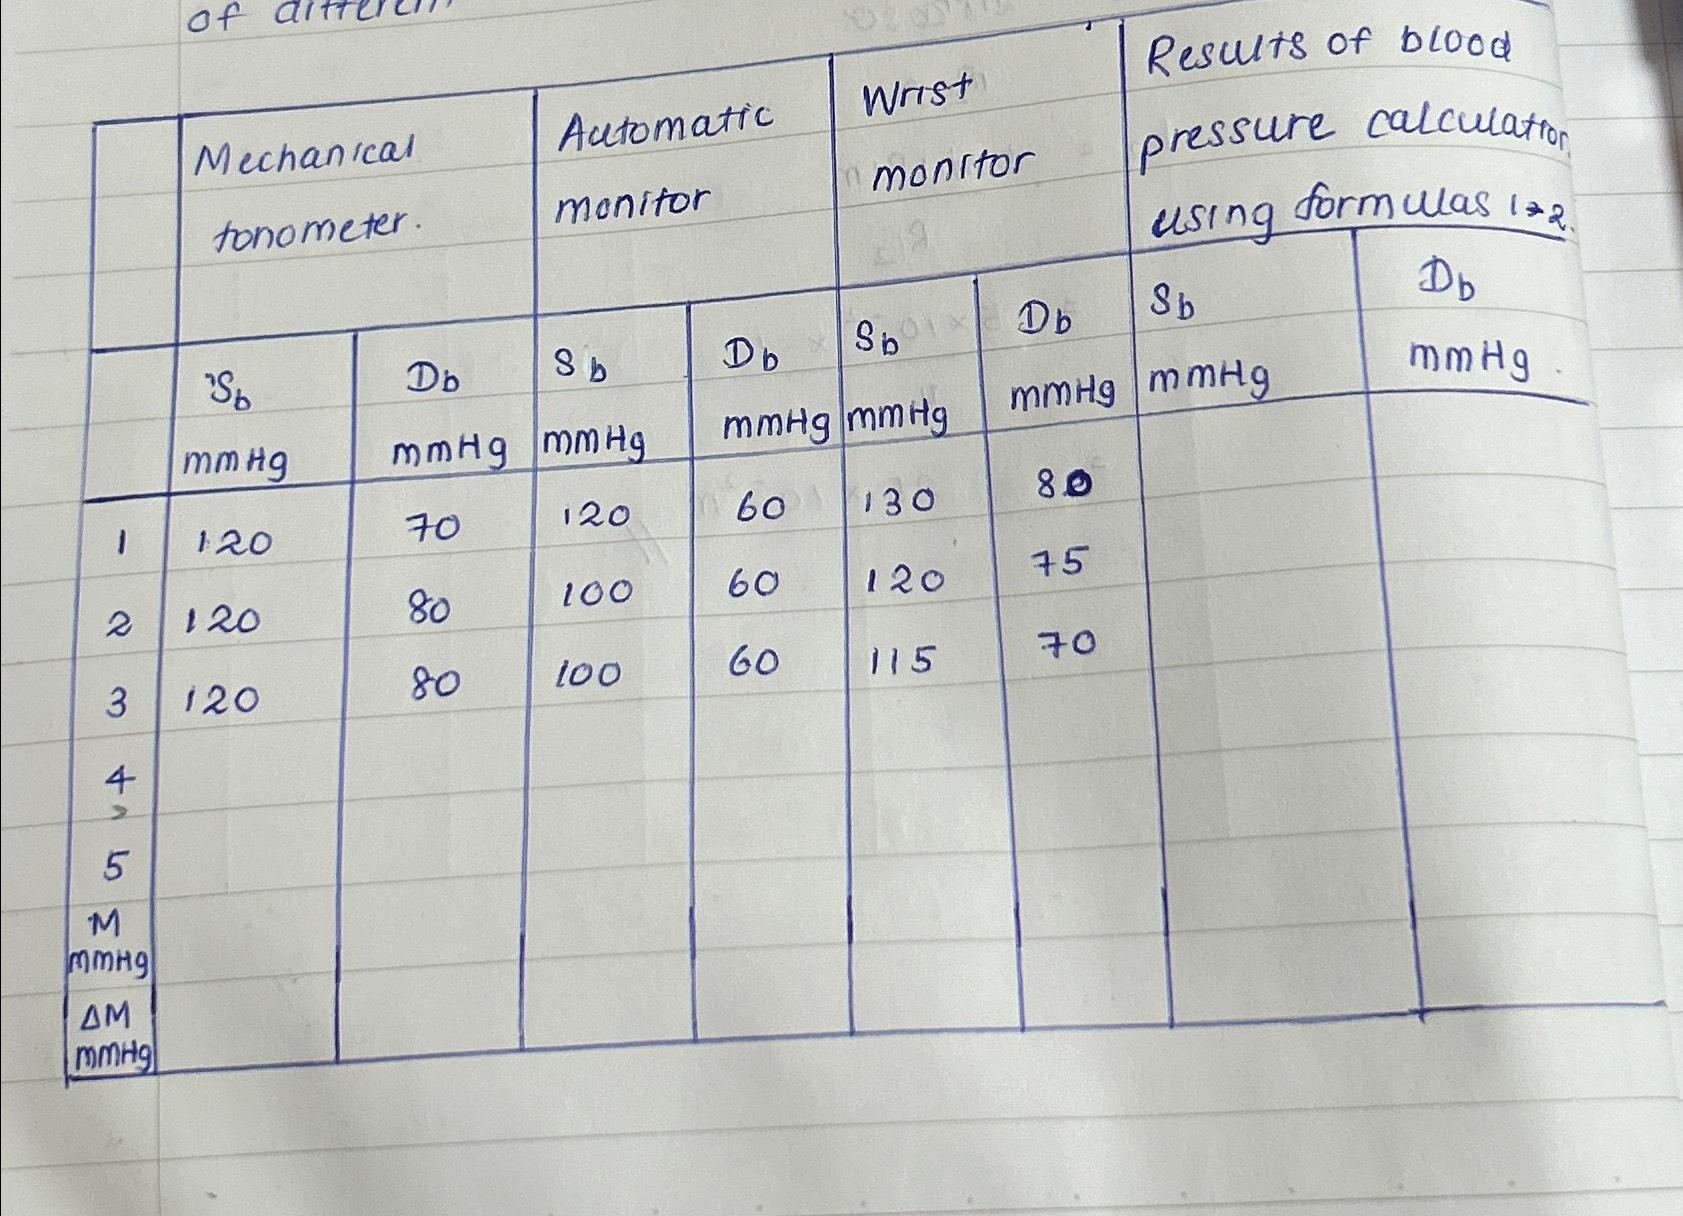 of different
Mechanical tonometer. Automatic monitor Wrist monitor Results of blood pressure calculation using formulas 1→2.
Sb mmHg Db mmHg Sb mmHg Db mmHg Sb mmHg Db mmHg Sb mmHg Db mmHg
1 120 70 120 60 130 80
2 120 80 100 60 120 75
3 120 80 100 60 115 70
4
5
M mmHg
ΔM mmHg